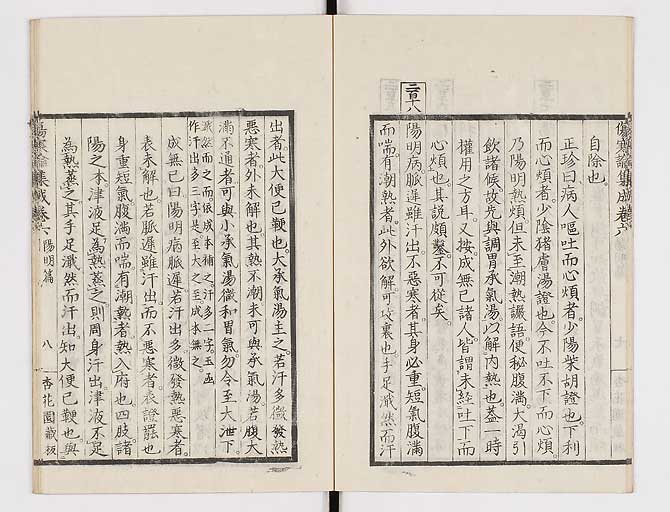 傷寒論集成卷六
自除也。
正珍曰病人嘔吐而心煩者。少陽柴胡證也。下利
而心煩者。少陰猪膚湯證也。今不吐不下而心煩。
乃陽明熱煩但未至潮熱讝語便秘腹滿。大渴引
飲諸候。故先與調胃承氣湯。以解內熱也。蓋一時
權用之方耳。又按。成無已諸人。皆謂未經吐下而
心煩也。其說頗鑿。不可從矣。
二百十八
陽明病。脈遲。雖汗出。不惡寒者。其身必重。短氣腹滿
而喘。有潮熱者。此外欲解。可攻裏也。手足濈然而汗
出者。此大便已鞕也。大承氣湯主之。若汗多。微發熱
惡寒者。外未解也。其熱不潮。未可與承氣湯。若腹大
滿不通者。可與小承氣湯。微和胃氣。勿令至大泄下。
濈然而之而。依成本補之。汗多二字。玉函
作汗出多三字。是。至大之至。成本無之。
成無已曰陽明病脈遲。若汗出多。微發熱惡寒者。
表未解也。若脈遲雖汗出而不惡寒者。表證罷也
身重短氣腹滿而喘。有潮熱者。熱入府也。四肢諸
陽之本。津液足。為熱蒸之。則周身汗出。津液不足
為熱蒸之。其手足濈然而汗出。知大便已鞕也。與
傷寒論集成卷六 陽明篇 八 杏花園藏板